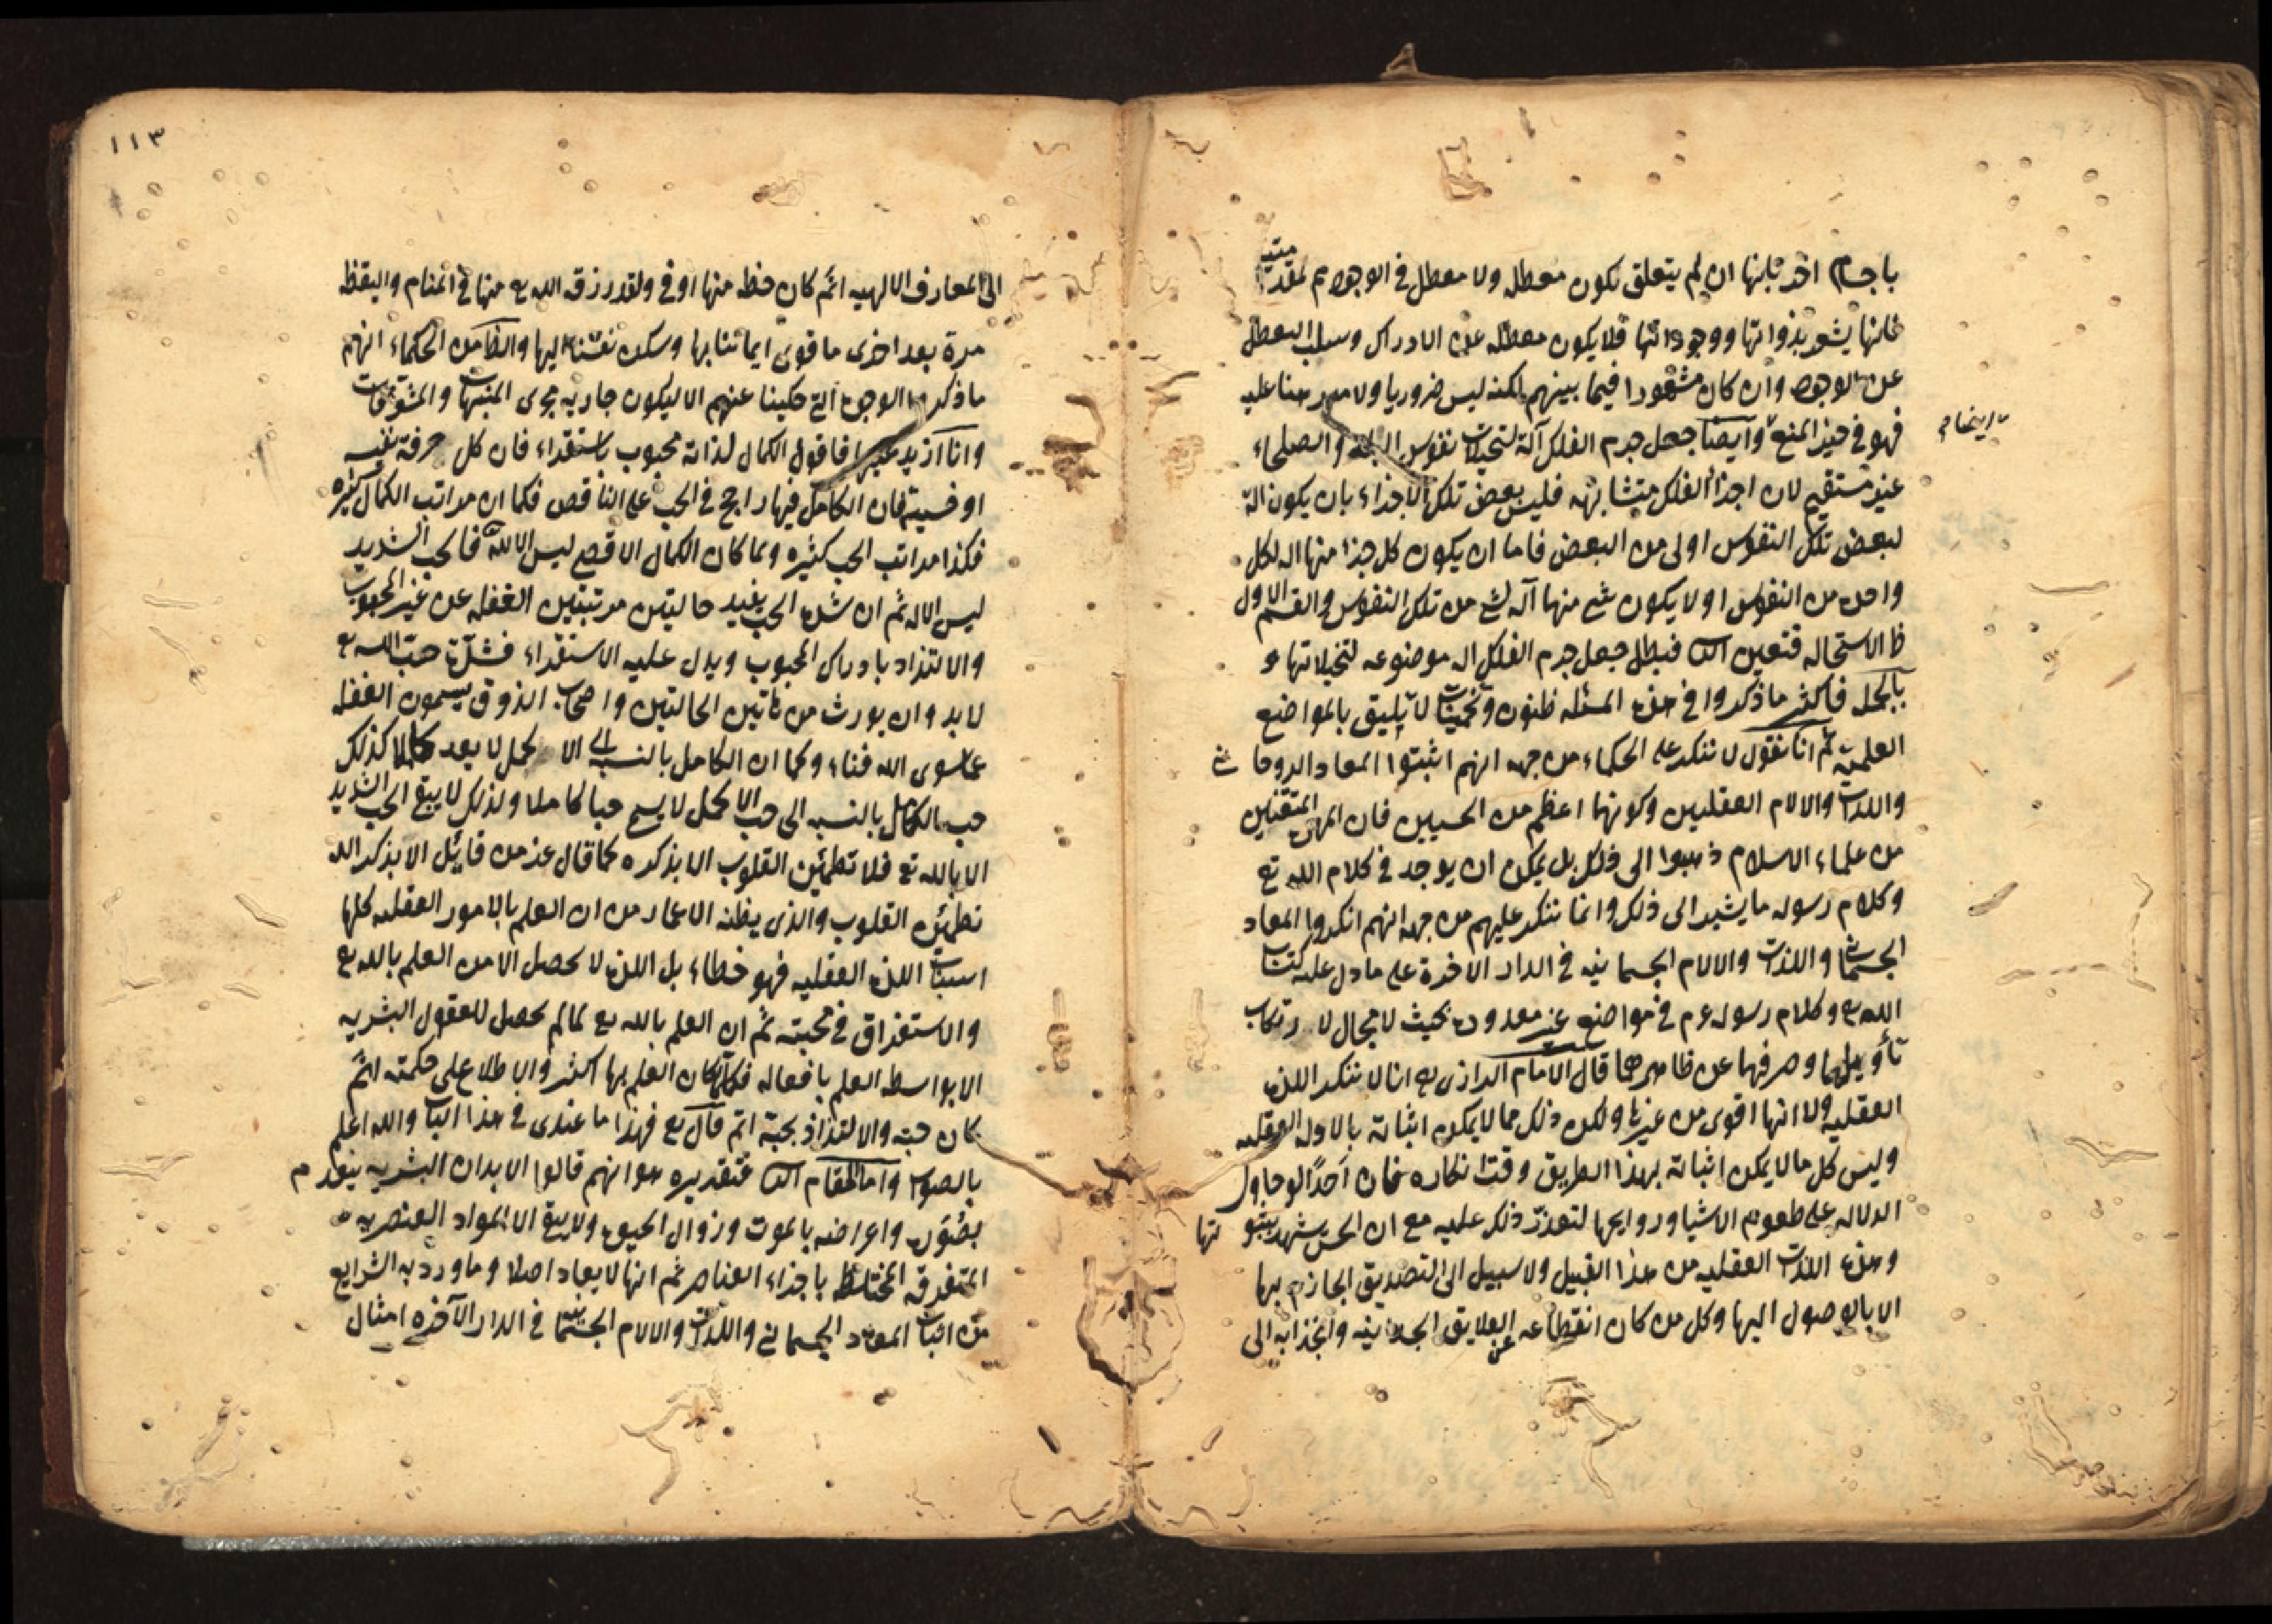 باجسام اخر فانها ان لم يتعلق تكون معطله ولا معطل فى الوجود م لمقدمتيه
فانها يشعر بذواتها ووجوداتها فلا يكون معطله عن الادراك وسلب التعطل
عن الوجود وان كان مشهورا فيما بينهم لكنه ليس ضروريا ولا مبرهنا عليه
فهو فى حيز المنع وايضا جعل جرم الفلك آلة لتخيلات نفوس البله والصلحاء
غير مستقيم لان اجزاء الفلك متشابهه فليس بعض تلك الاجزاء بان يكون آلة
لبعض تلك النفوس اولى من البعض فاما ان يكون كل جزء منها اله لكل
واحد من النفوس او لا يكون شى منها آله لشى من تلك النفوس والقسم الاول
ظ الاستحاله فتعين الثا فبطل جعل جرم الفلك اله موضوعه لتخيلاتها و
بالجمله فاكثر ما ذكروا فى هذه المسئله ظنون وتخمينات لا يليق بالمواضع
العلميه ثم انا نقول لا ننكر على الحكماء من جهه انهم اثبتوا المعاد الروحا
واللذات والالام العقليين وكونهما اعظم من الحسيين فان المهره المتقنين
من علماء الاسلام ذهبوا الى ذلك بل يمكن ان يوجد فى كلام الله تع
وكلام رسوله ما يشير الى ذلك وانما ننكر عليهم من جهه انهم انكروا المعاد
الجسمانى واللذات والالام الجسمانيه فى الدار الاخرة على ما دل عليه كتاب
الله تع وكلام رسوله عم فى مواضع غير معدوده بحيث لا مجال لارتكاب
تأويلهما وصرفهما عن ظاهرهما قال الامام الرازى رح انا لا ننكر اللذه
العقليه ولا انها اقوى من غيرها ولكن ذلك مما لا يمكن اثباته بالادله العقليه
وليس كل ما لا يمكن اثباته بهذا الطريق وقت انكاره فان احدًا لو حاول
الدلاله على طعوم الاشيا وروايحها لتعذر ذلك عليه مع ان الحس شهد بثبوتها
وهذه اللذات العقليه من هذا القبيل ولا سبيل الى التصديق الجازم بها
الا بالوصول اليها وكل من كان انقطاعه عن العلايق الجسمانيه وانجذابه الى
١١٣
الى المعارف الالهيه اتم كان حظه منها اوفى ولقد رزقه الله تع منها فى المنام واليقظه
مرة بعد اخرى ما قوى ايماننا بها وسكن نفسنا اليها والظا من الحكماء انهم
ما ذكروا الوجوه التى حكينا عنهم الا ليكون جاريه مجرى المنبهات والمشوقات
وانا ازيد عليها فاقول الكمال لذاته محبوب باستقراء فان كل حرفة نفيسه
او خسيسة فان الكامل فيها راجح فى الحب على الناقص فكما ان مراتب الكمال كثيره
فكذا مراتب الحب كثيره ولما كان الكمال الاقصى ليس الا لله فالحب الشديد
ليس الا له ثم ان شده الحب يفيد حالتين مرتبتين الغفله عن غير المحبوب
والالتذاذ بادراك المحبوب ويدل عليه الاستقراء فشدة حب الله تع
لا بد وان يورث من هاتين الحالتين واصحاب الذوق يسمون الغفله
عما سوى الله فناء وكما ان الكامل بالنسبه الى الاكمل لا يعد كاملا كذلك
حب الكامل بالنسبه الى حب الاكمل لا يسمى حبا كاملا ولذلك لا يبقى الحب الشديد
الا بالله تع فلا تطمئن القلوب الا بذكره كما قال عز من قائل الا بذكر الله
تطمئن القلوب والذى يظنه الاغمار من ان العلم بالامور العقليه كلها
اسباب اللذه العقليه فهو خطاء بل اللذه لا يحصل الا من العلم بالله تع
والاستغراق فى محبته ثم ان العلم بالله تع لما لم يحصل للعقول البشريه
الا بواسطه العلم بافعاله فكلما كان العلم بها اكثر والاطلاع على حكمته اتم
كان حبه والالتذاذ بحبه اتم قال رح فهذا ما عندى فى هذا الباب والله اعلم
بالصواب واما المقام الثا فتقديره هو انهم قالوا الابدان البشريه ينعدم
بصوره واعراضه بالموت وزوال الحيوه ولا يبقى الا المواد العنصريه
المتفرقه المختلطه باجزاء العناصر ثم انها لا يعاد اصلا وما ورد به الشرايع
من اثبات المعاد الجسمانى واللذات والالام الجسمانيه فى الدار الآخره امثال